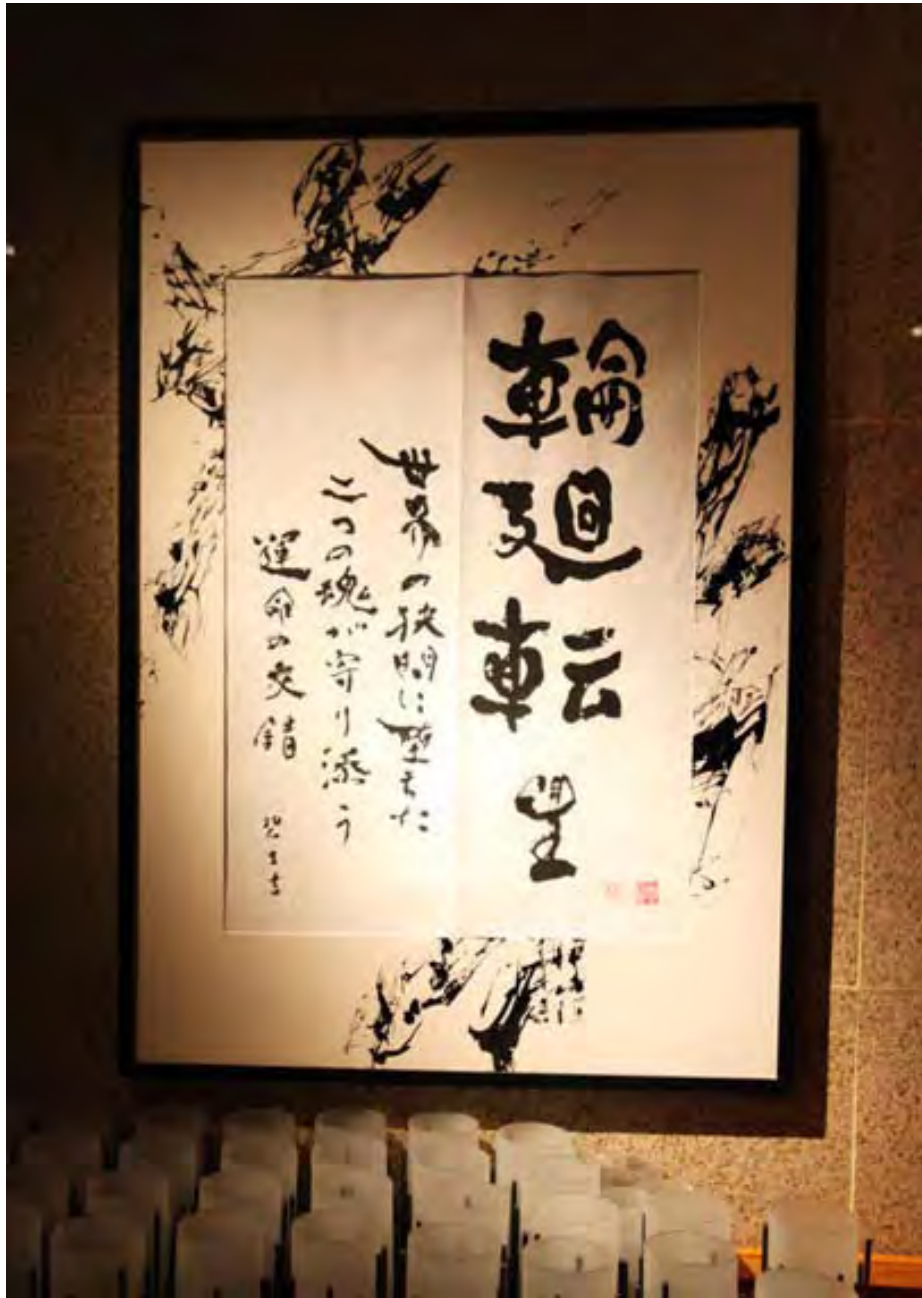 輪廻転生
世界の狭間に堕ちた
二つの魂が寄り添う
運命の交錯